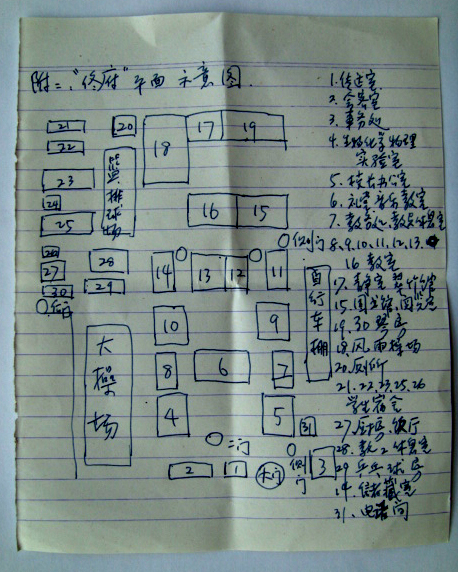 附二："佟府"平面示意图
1. 传达室
2. 会客室
3. 事务处
4. 生物化学物理
实验室
5. 校长办公室
6. 礼堂 音乐教室
7. 教务处、教员休息室
8、9、10、11、12、13、
16 教室
17. 教室
15. 图书馆、阅览室
19、30 琴房
18. 风雨操场
20. 厕所
21、22、23、25、26
学生宿舍
27. 厨房、饭厅
28. 教工休息室
29. 乒乓球房
14. 储藏室
31. 电话间
21
22
20
17
19
18
23
24
25
篮排球场
16
15
侧门
26
27
28
14
13
12
11
30
29
后门
自行车棚
大操场
10
9
8
6
7
4
5
31
二门
侧门
3
2
1
大门